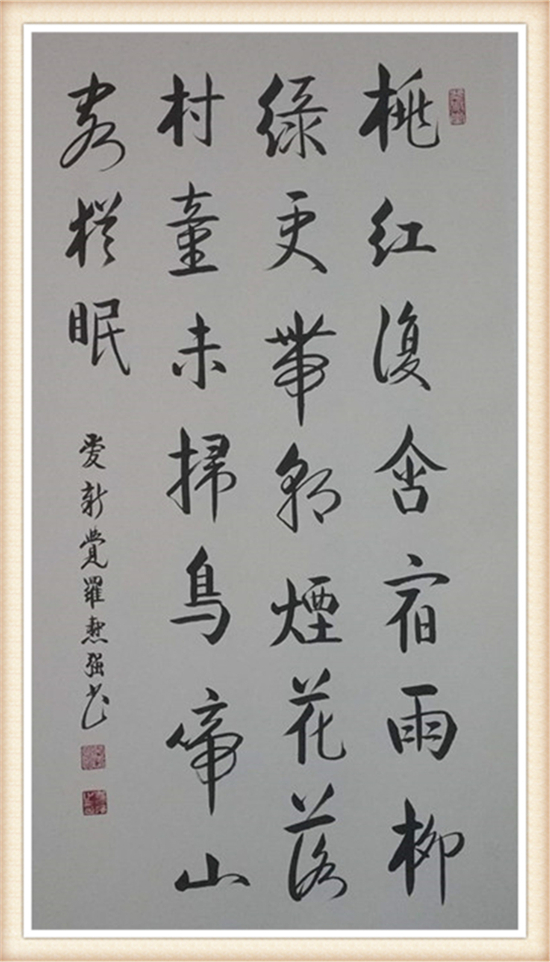 桃紅復含宿雨柳
緑更帶朝煙花落
村童未掃鳥啼山
客猶眠
愛新覺羅 强书